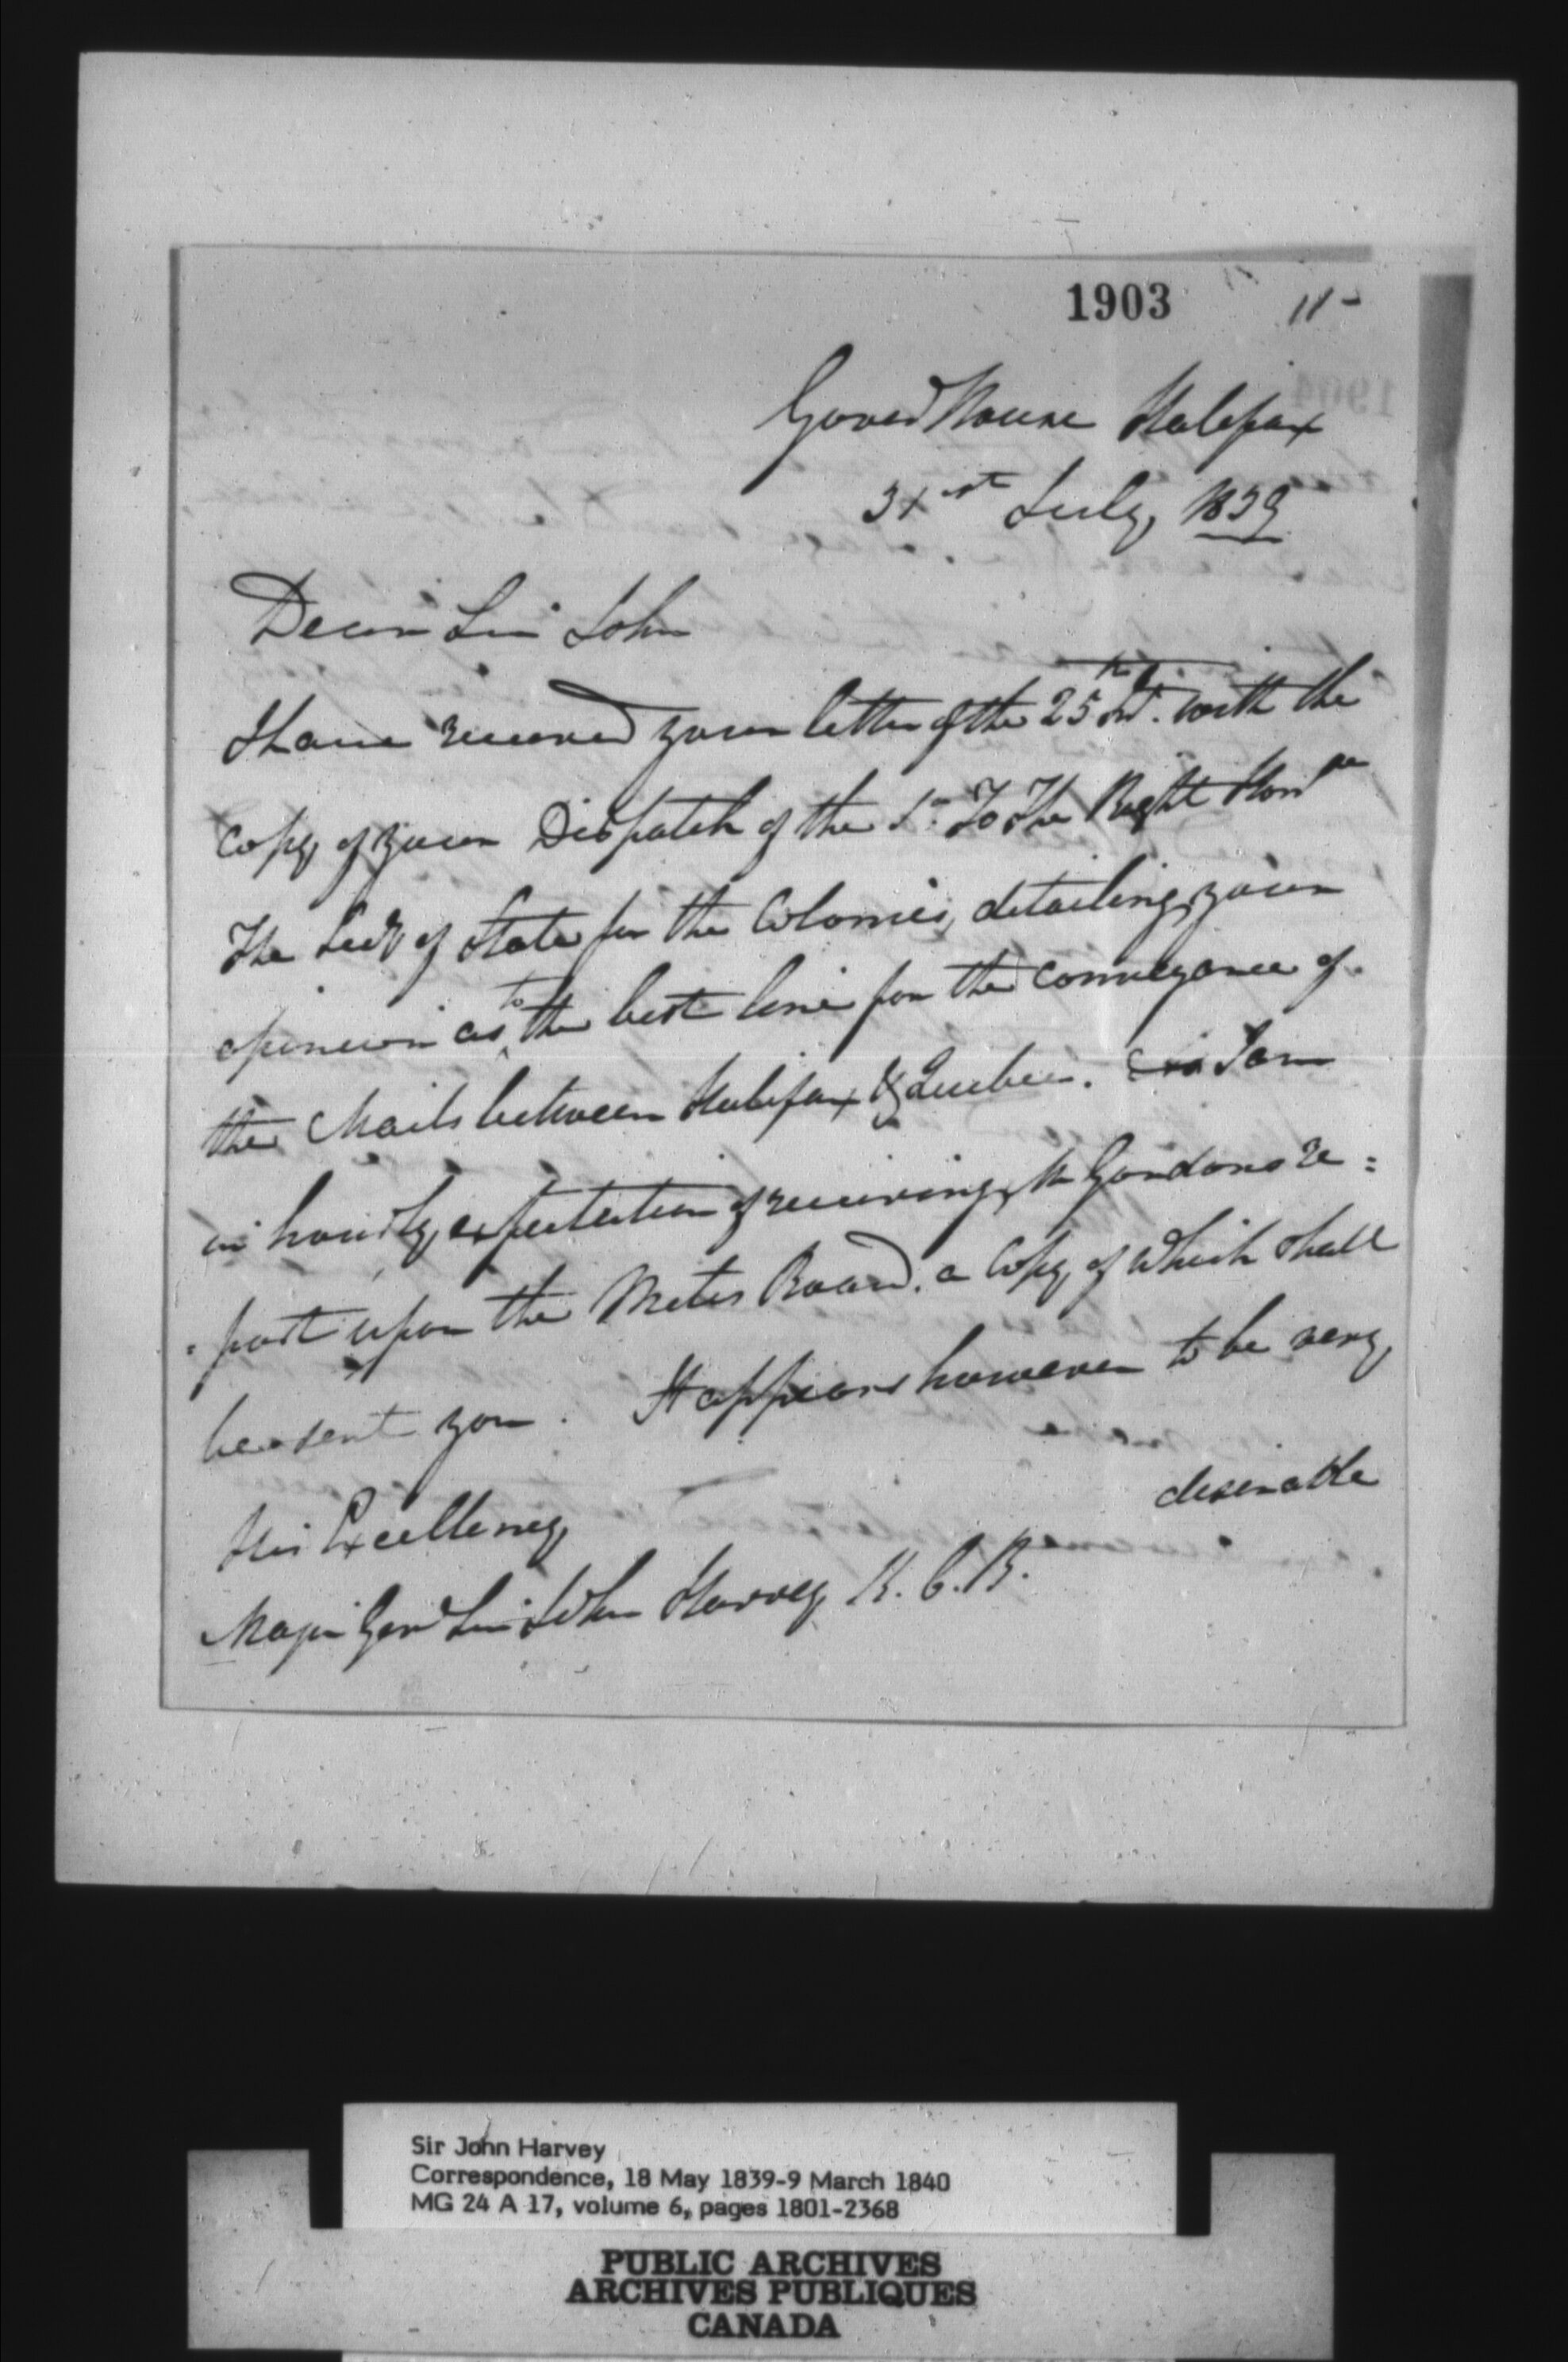 1903
11-
Govert House Halifax
31st July, 1839
Dear Sir John
I have received your letter of the 25th Inst. with the
Copy of your Dispatch of the 1st To The Right Honble
The Secy of State for the Colonies, detailing your
opinion as to the best line for the conveyance of
the Mails between Halifax & Quebec. I am
in hourly expectation of receiving Mr Gordons re=
=port upon the Metis Road, a Copy of which shall
be sent you. It appears however to be very
desirable
His Excellency
Major Genl Sir John Harvey K.C.B.
Sir John Harvey
Correspondence, 18 May 1839-9 March 1840
MG 24 A 17, volume 6, pages 1801-2368
PUBLIC ARCHIVES
ARCHIVES PUBLIQUES
CANADA